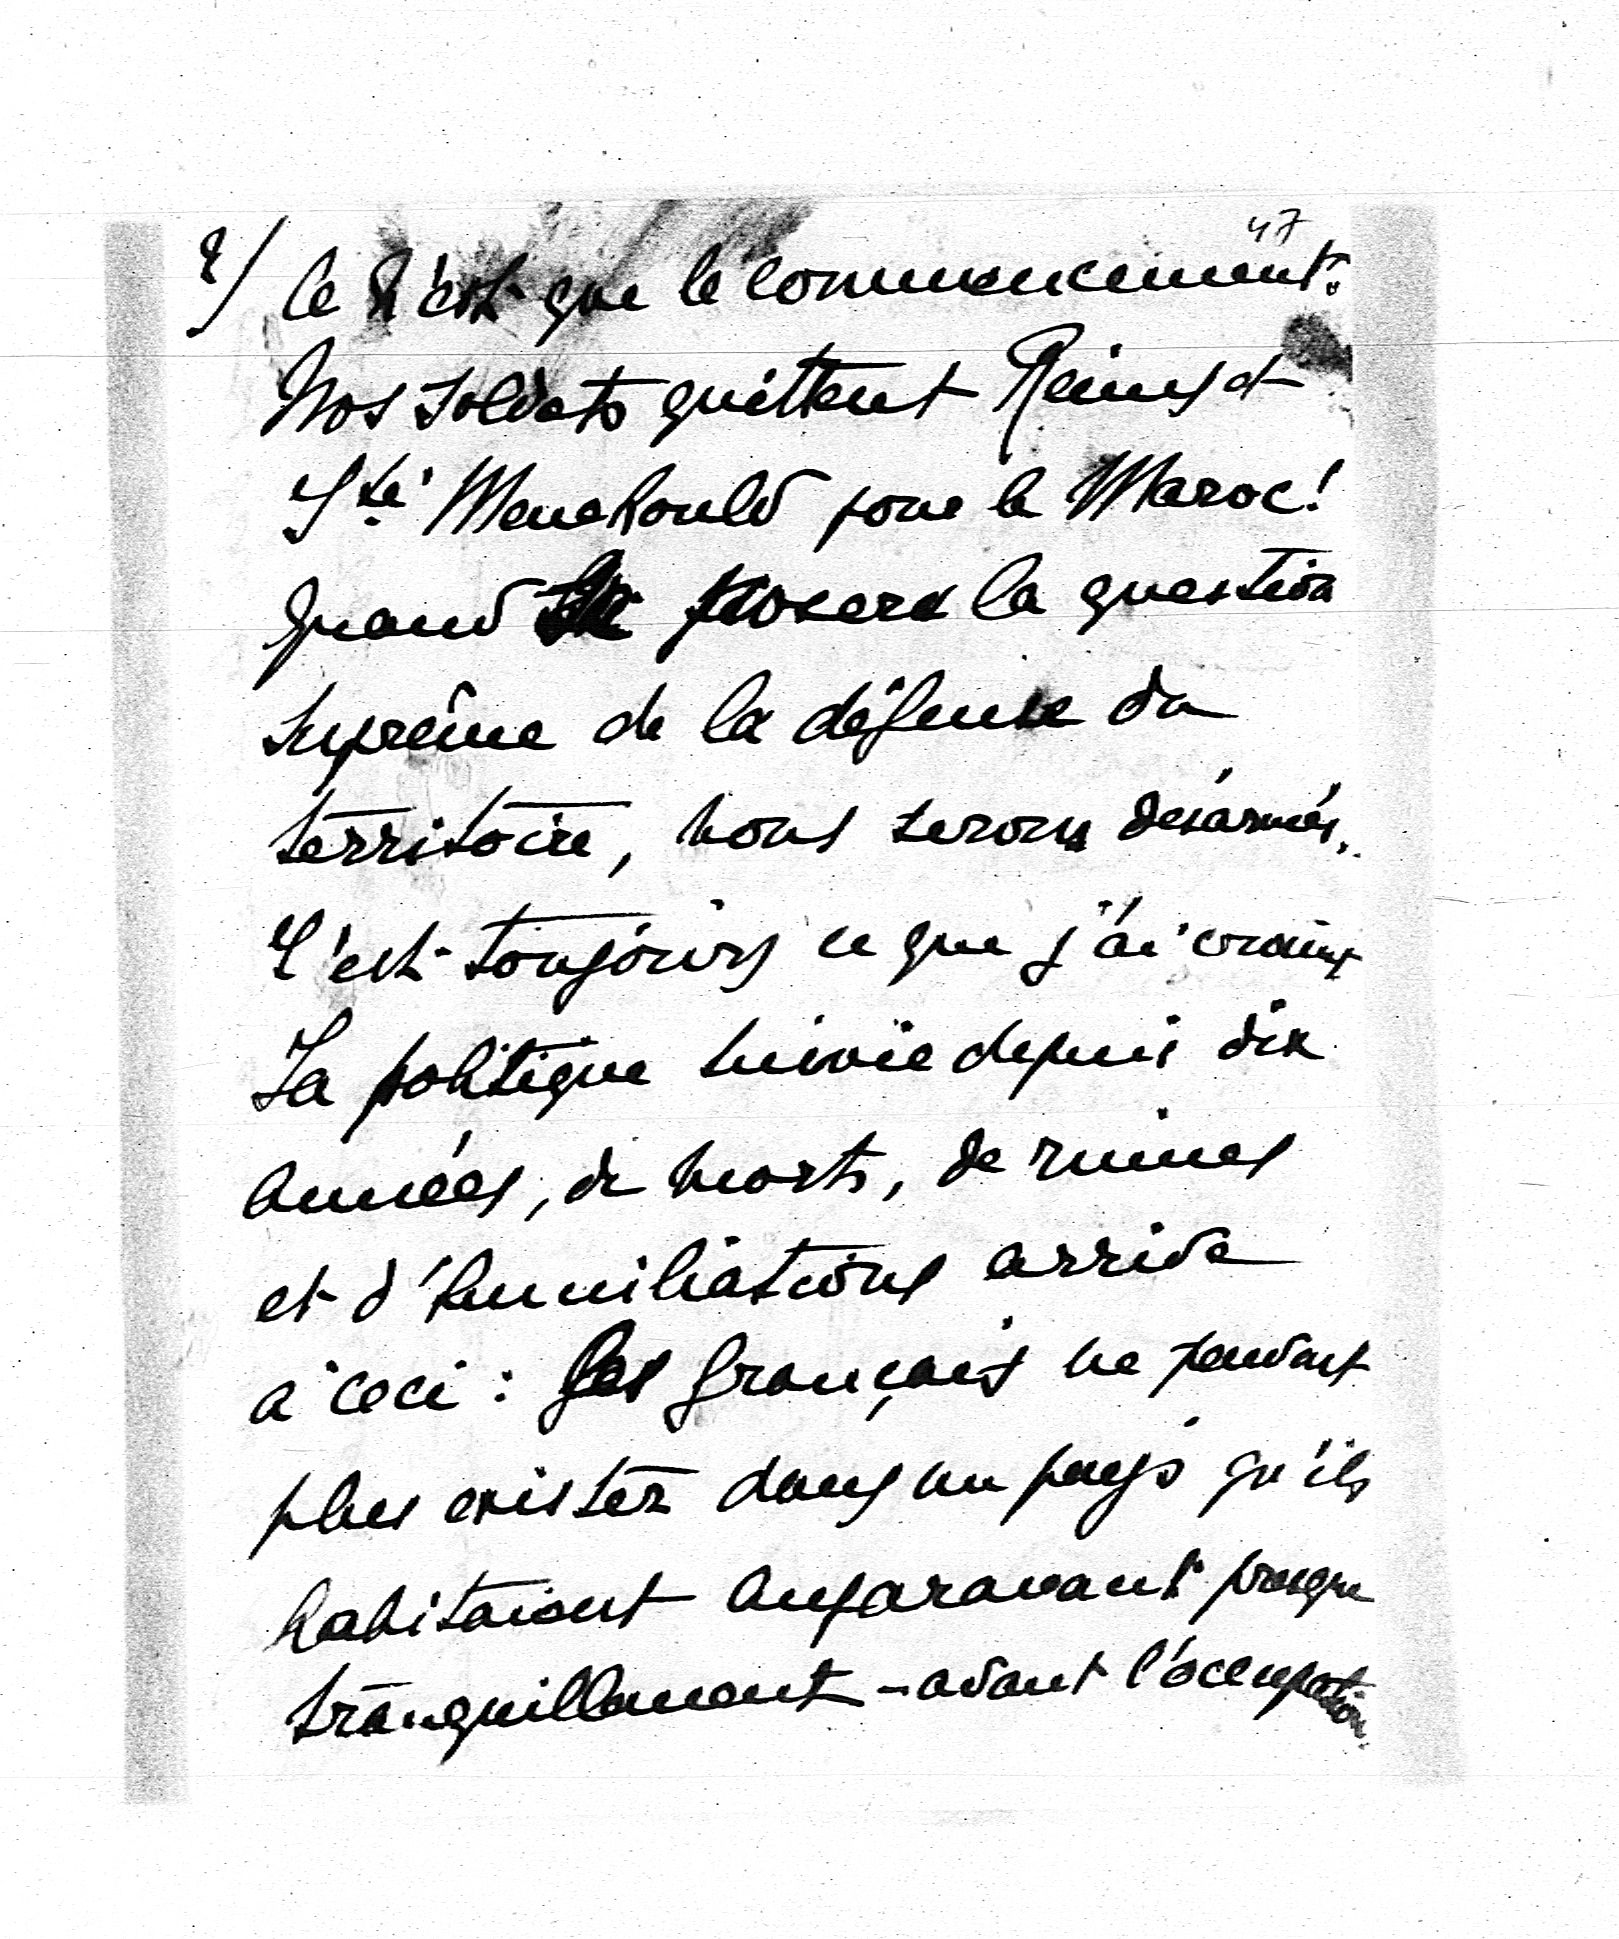 47
2/ Ce n'est que le commencement.
Nos soldats quittent Reims et
Ste Menehould pour le Maroc!
Quand se posera la question
suprême de la défense du
territoire, nous serons désarmés.
C'est toujours ce que j'ai craint
La politique suivie depuis dix
années, de morts, de ruines
et d'humiliations arrive
à ceci : Les français ne peuvent
plus exister dans un pays qu'ils
habitaient auparavant presque
tranquillement - avant l'occupation.